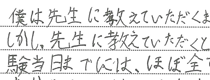 僕は先生に教えていただくま
しかし、先生に教えていただくと
験当日までには、ほぼ全